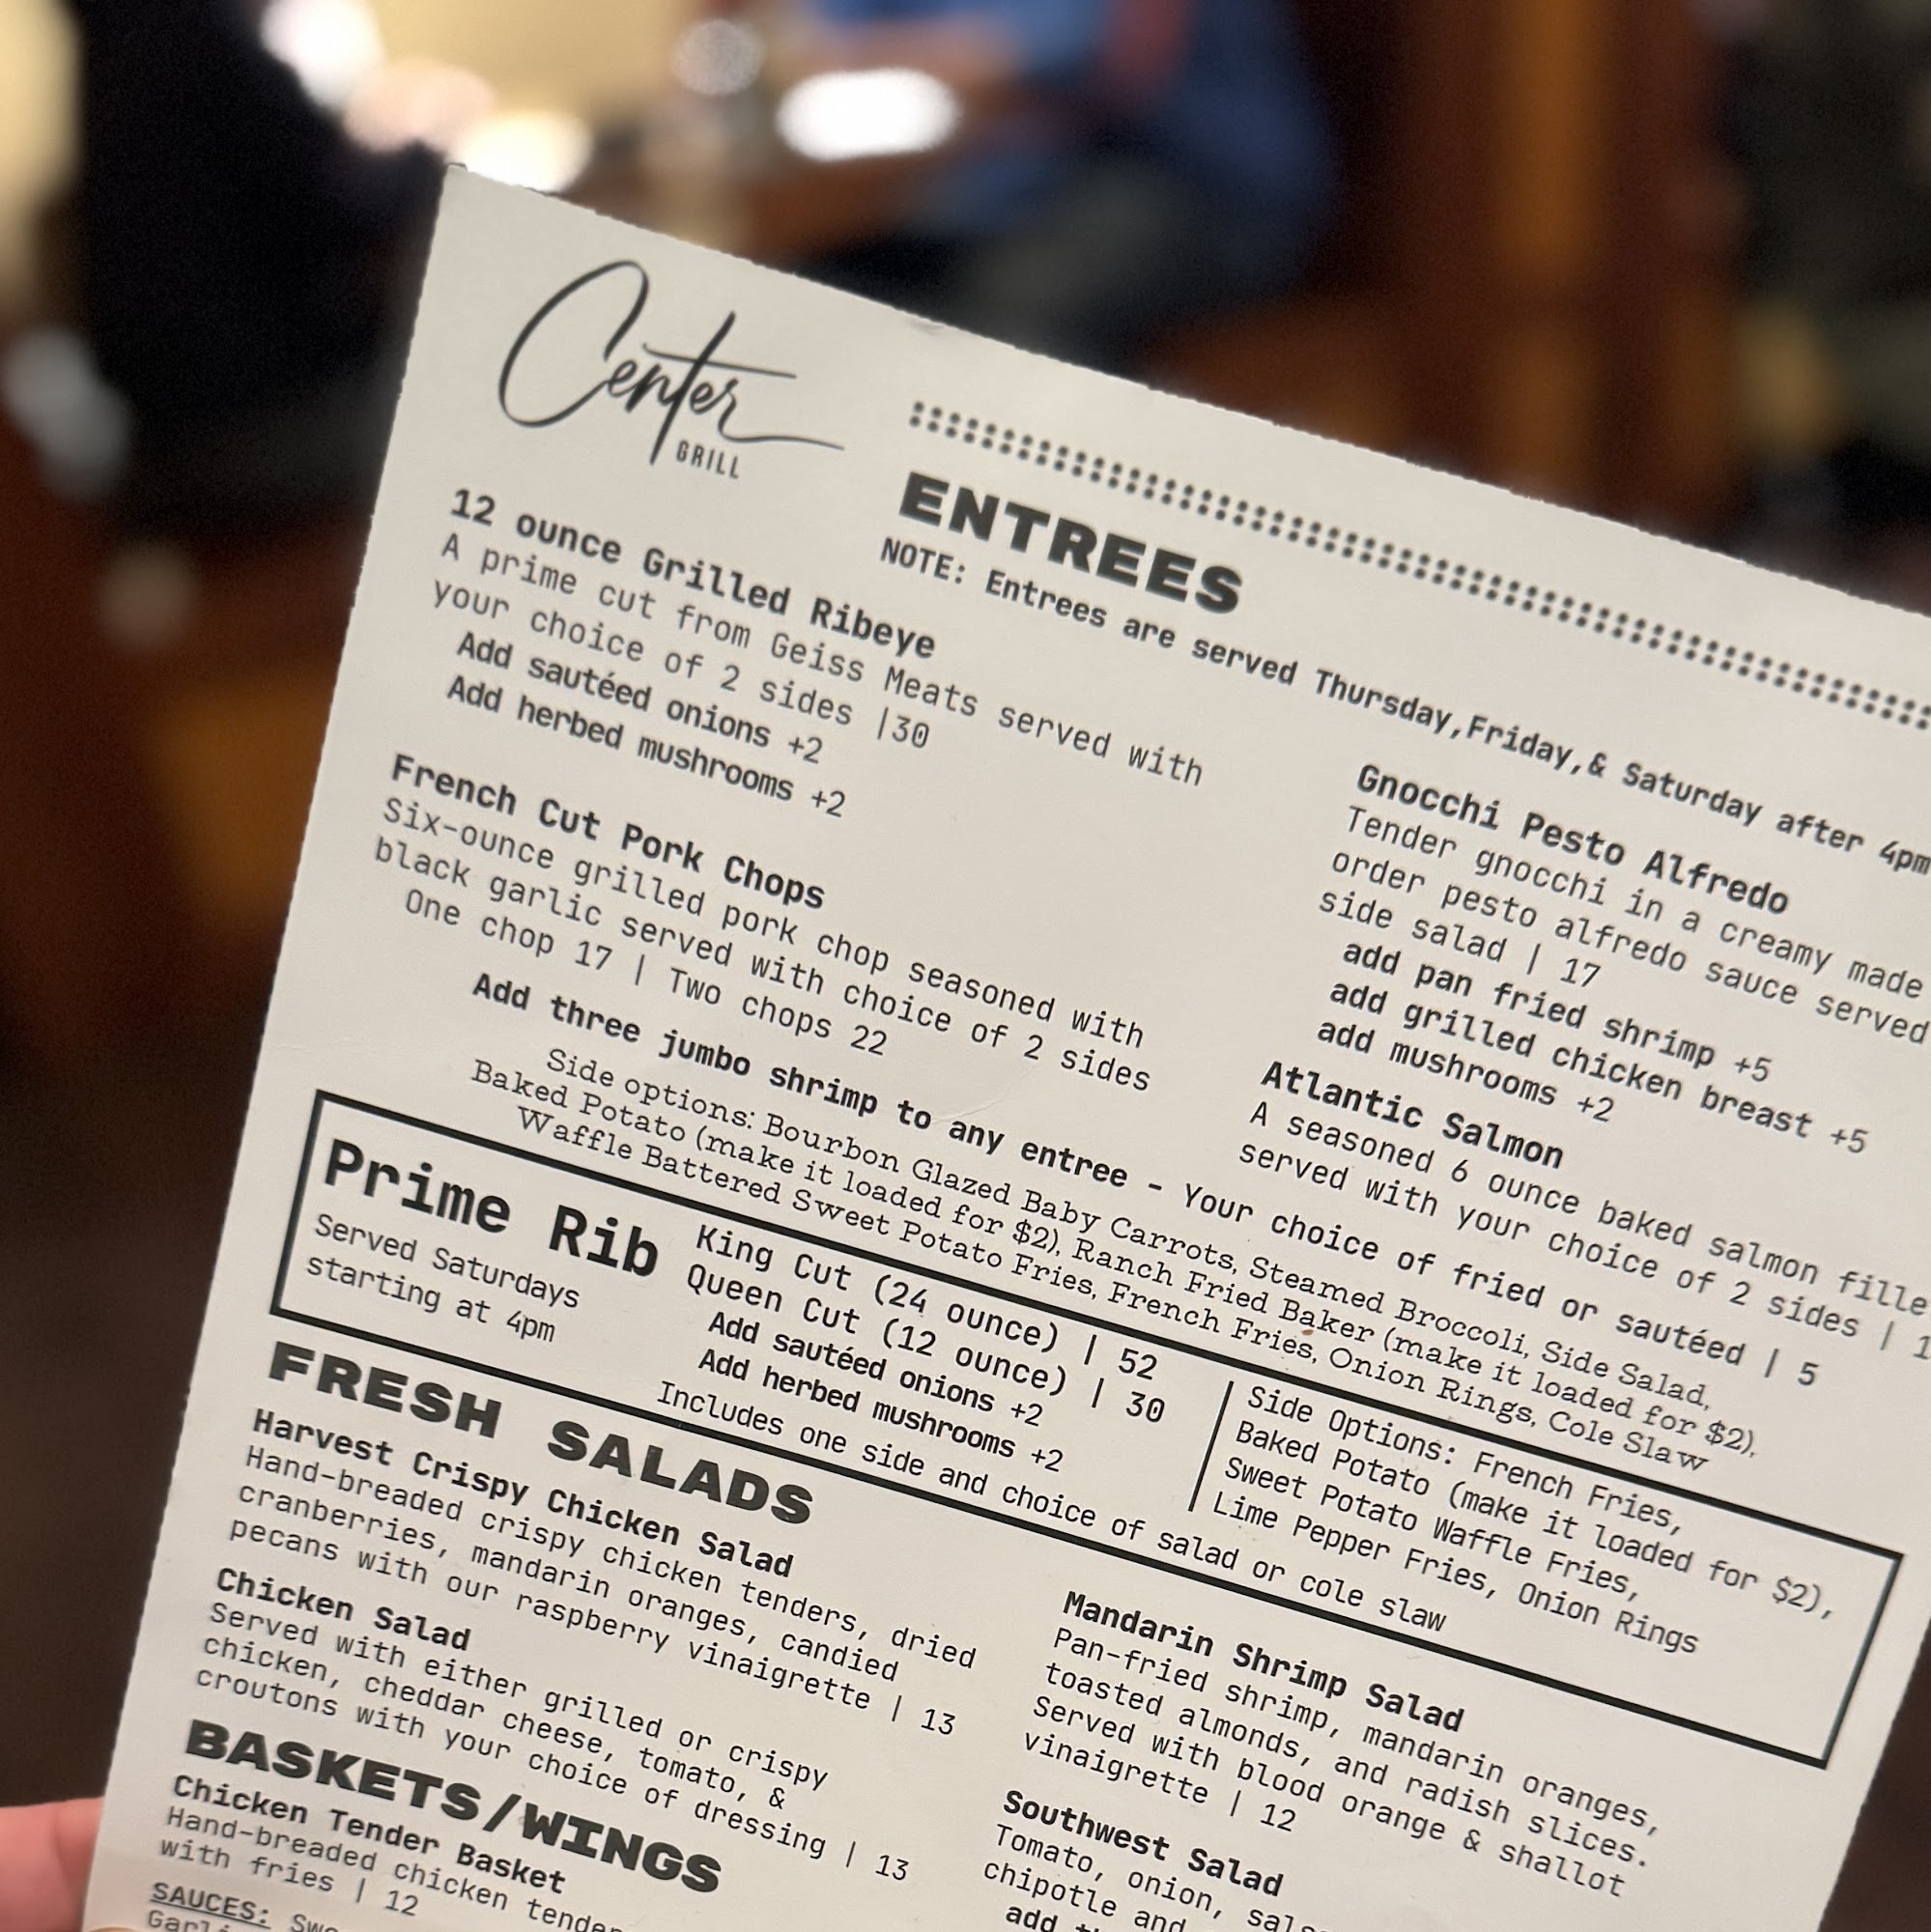 Center
GRILL
ENTREES
NOTE: Entrees are served Thursday,Friday,& Saturday after 4pm
12 ounce Grilled Ribeye
A prime cut from Geiss Meats served with
your choice of 2 sides |30
Add sautéed onions +2
Add herbed mushrooms +2
French Cut Pork Chops
Six-ounce grilled pork chop seasoned with
black garlic served with choice of 2 sides
One chop 17 | Two chops 22
Gnocchi Pesto Alfredo
Tender gnocchi in a creamy made
order pesto alfredo sauce served
side salad | 17
add pan fried shrimp +5
add grilled chicken breast +5
add mushrooms +2
Atlantic Salmon
A seasoned 6 ounce baked salmon
served with your choice of 2 sides |
Add three jumbo shrimp to any entree - Your choice of fried or sautéed | 5
Side options: Bourbon Glazed Baby Carrots, Steamed Broccoli, Side Salad,
Baked Potato (make it loaded for $2), Ranch Fried Baker (make it loaded for $2),
Waffle Battered Sweet Potato Fries, French Fries, Onion Rings, Cole Slaw
Prime Rib
Served Saturdays
starting at 4pm
King Cut (24 ounce) | 52
Queen Cut (12 ounce) | 30
Add sautéed onions +2
Add herbed mushrooms +2
Includes one side and choice of salad or cole slaw
Side Options: French Fries,
Baked Potato (make it loaded for $2),
Sweet Potato Waffle Fries,
Lime Pepper Fries, Onion Rings
FRESH SALADS
Harvest Crispy Chicken Salad
Hand-breaded crispy chicken tenders, dried
cranberries, mandarin oranges, candied
pecans with our raspberry vinaigrette | 13
Chicken Salad
Served with either grilled or crispy
chicken, cheddar cheese, tomato, &
croutons with your choice of dressing | 13
Mandarin Shrimp Salad
Pan-fried shrimp, mandarin oranges,
toasted almonds, and radish slices.
Served with blood orange & shallot
vinaigrette | 12
Southwest Salad
Tomato, onion,
chipotle and
add
BASKETS/WINGS
Chicken Tender Basket
Hand-breaded chicken
with fries | 12
SAUCES: